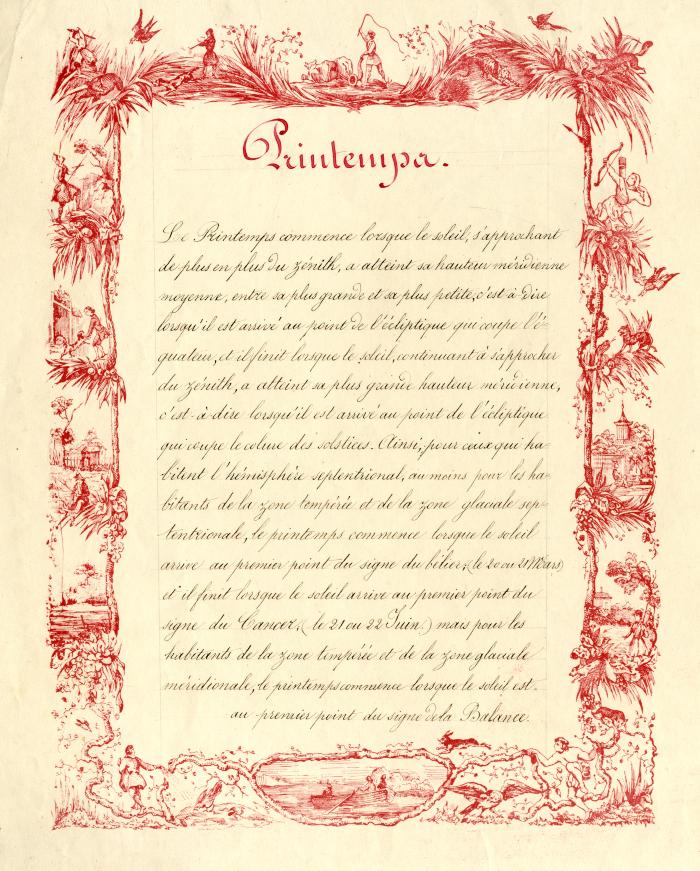 Printemps.
Le Printemps commence lorsque le soleil, s'approchant
de plus en plus du zénith, a atteint sa hauteur méridienne
moyenne, entre sa plus grande et sa plus petite, c'est-à-dire
lorsqu'il est arrivé au point de l'écliptique qui coupe l'é-
quateur, et il finit lorsque le soleil, continuant à s'approcher
du zénith, a atteint sa plus grande hauteur méridienne,
c'est-à-dire lorsqu'il est arrivé au point de l'écliptique
qui coupe le colure des solstices. Ainsi, pour ceux qui ha-
bitent l'hémisphère septentrional, au moins pour les ha-
bitants de la zone tempérée et de la zone glaciale sep-
tentrionale, le printemps commence lorsque le soleil
arrive au premier point du signe du bélier, (le 20 ou 21 Mars)
et il finit lorsque le soleil arrive au premier point du
signe du Cancer, (le 21 ou 22 Juin) mais pour les
habitants de la zone tempérée et de la zone glaciale
méridionale, le printemps commence lorsque le soleil est
au premier point du signe de la Balance.